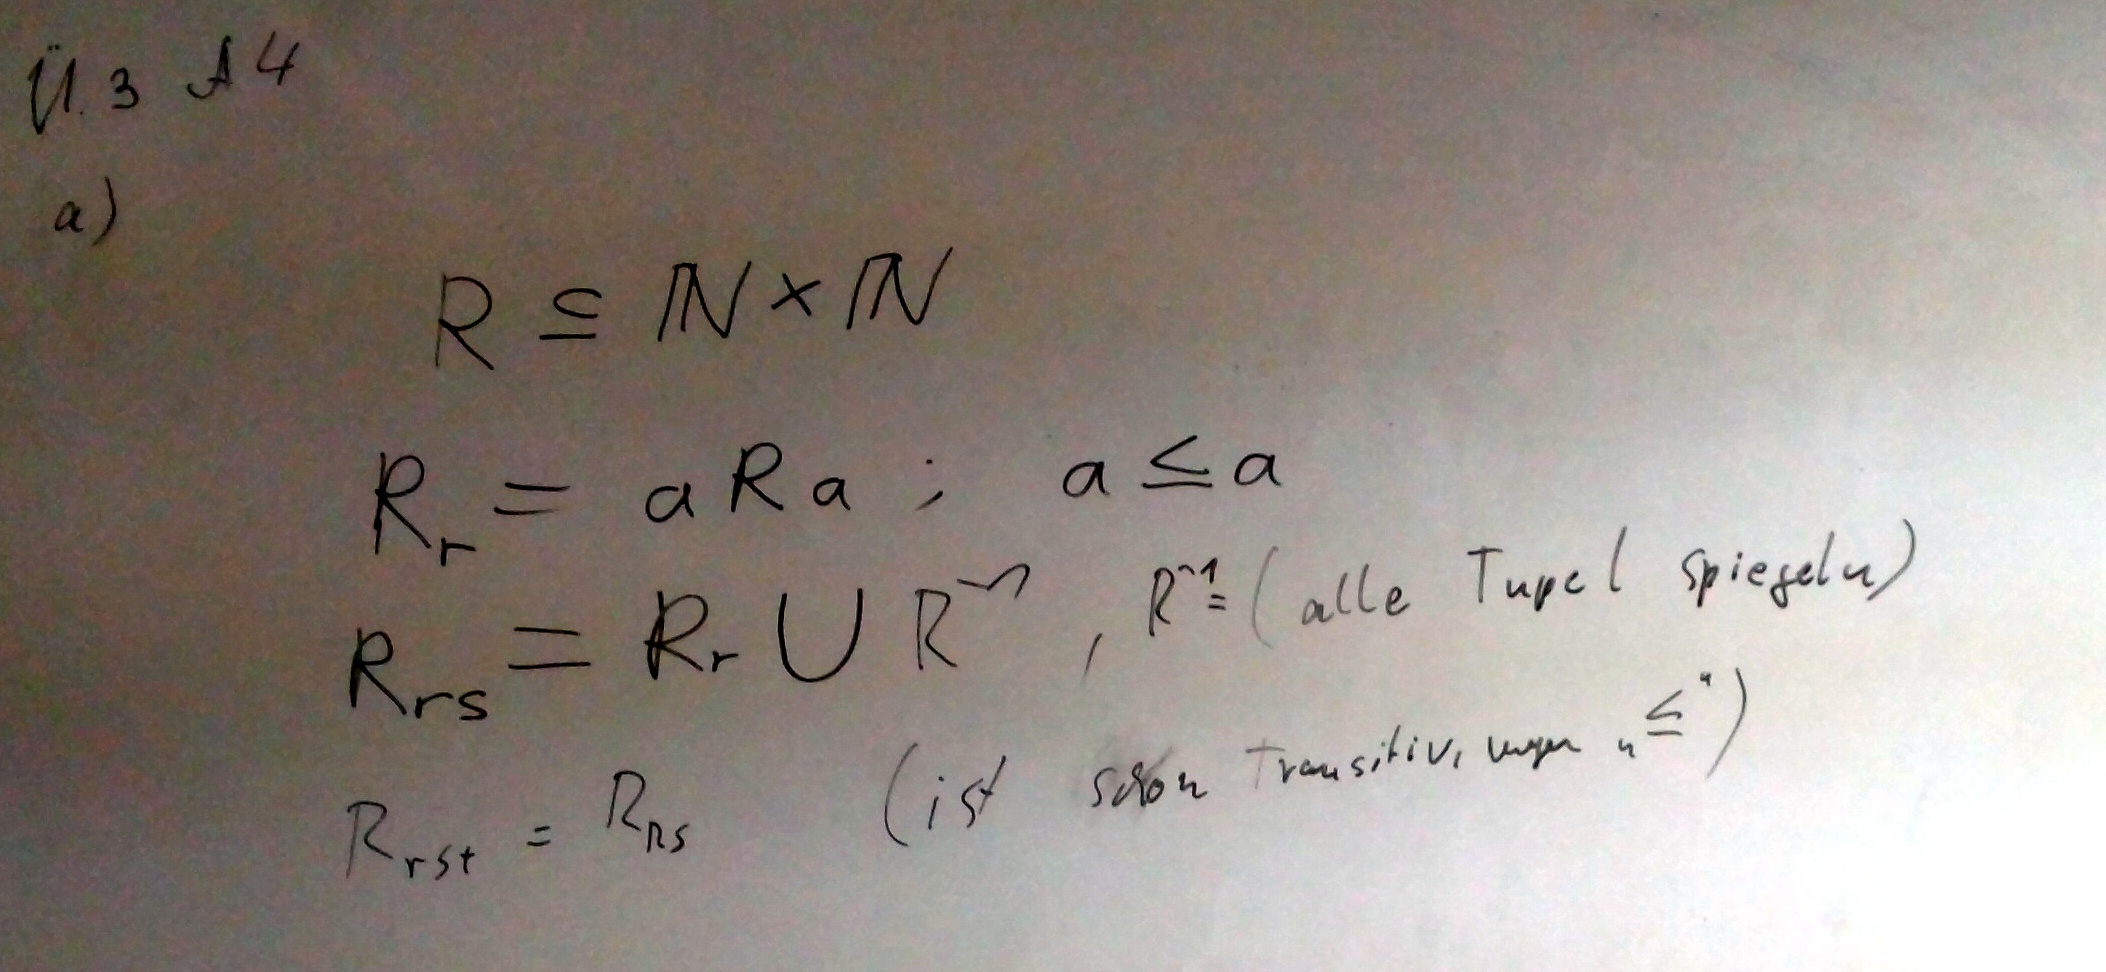 Ü. 3 A4
a)
R ⊆ ℕ × ℕ
R_r = a R a ; a ≤ a
R_rs = R_r ∪ R^-1 , R^-1 = (alle Tupel spiegeln)
R_rst = R_RS (ist schon Transitiv, wegen „≤")